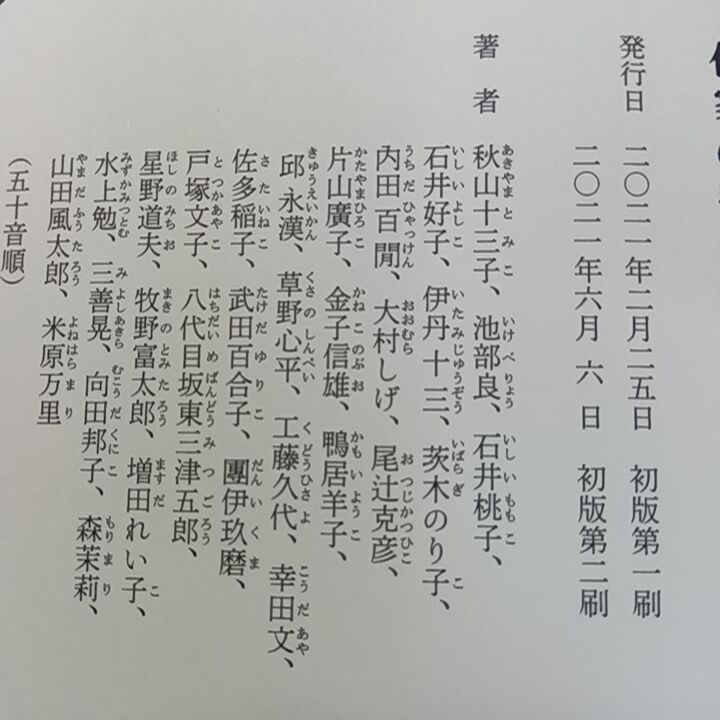 発行日 二〇二一年二月二五日 初版第一刷
二〇二一年六月 六 日 初版第二刷
著 者 秋山十三子、池部良、石井桃子、
石井好子、伊丹十三、茨木のり子、
内田百閒、大村しげ、尾辻克彦、
片山廣子、金子信雄、鴨居羊子、
邱永漢、草野心平、工藤久代、幸田文、
佐多稲子、武田百合子、團伊玖磨、
戸塚文子、八代目坂東三津五郎、
星野道夫、牧野富太郎、増田れい子、
水上勉、三善晃、向田邦子、森茉莉、
山田風太郎、米原万里
（五十音順）